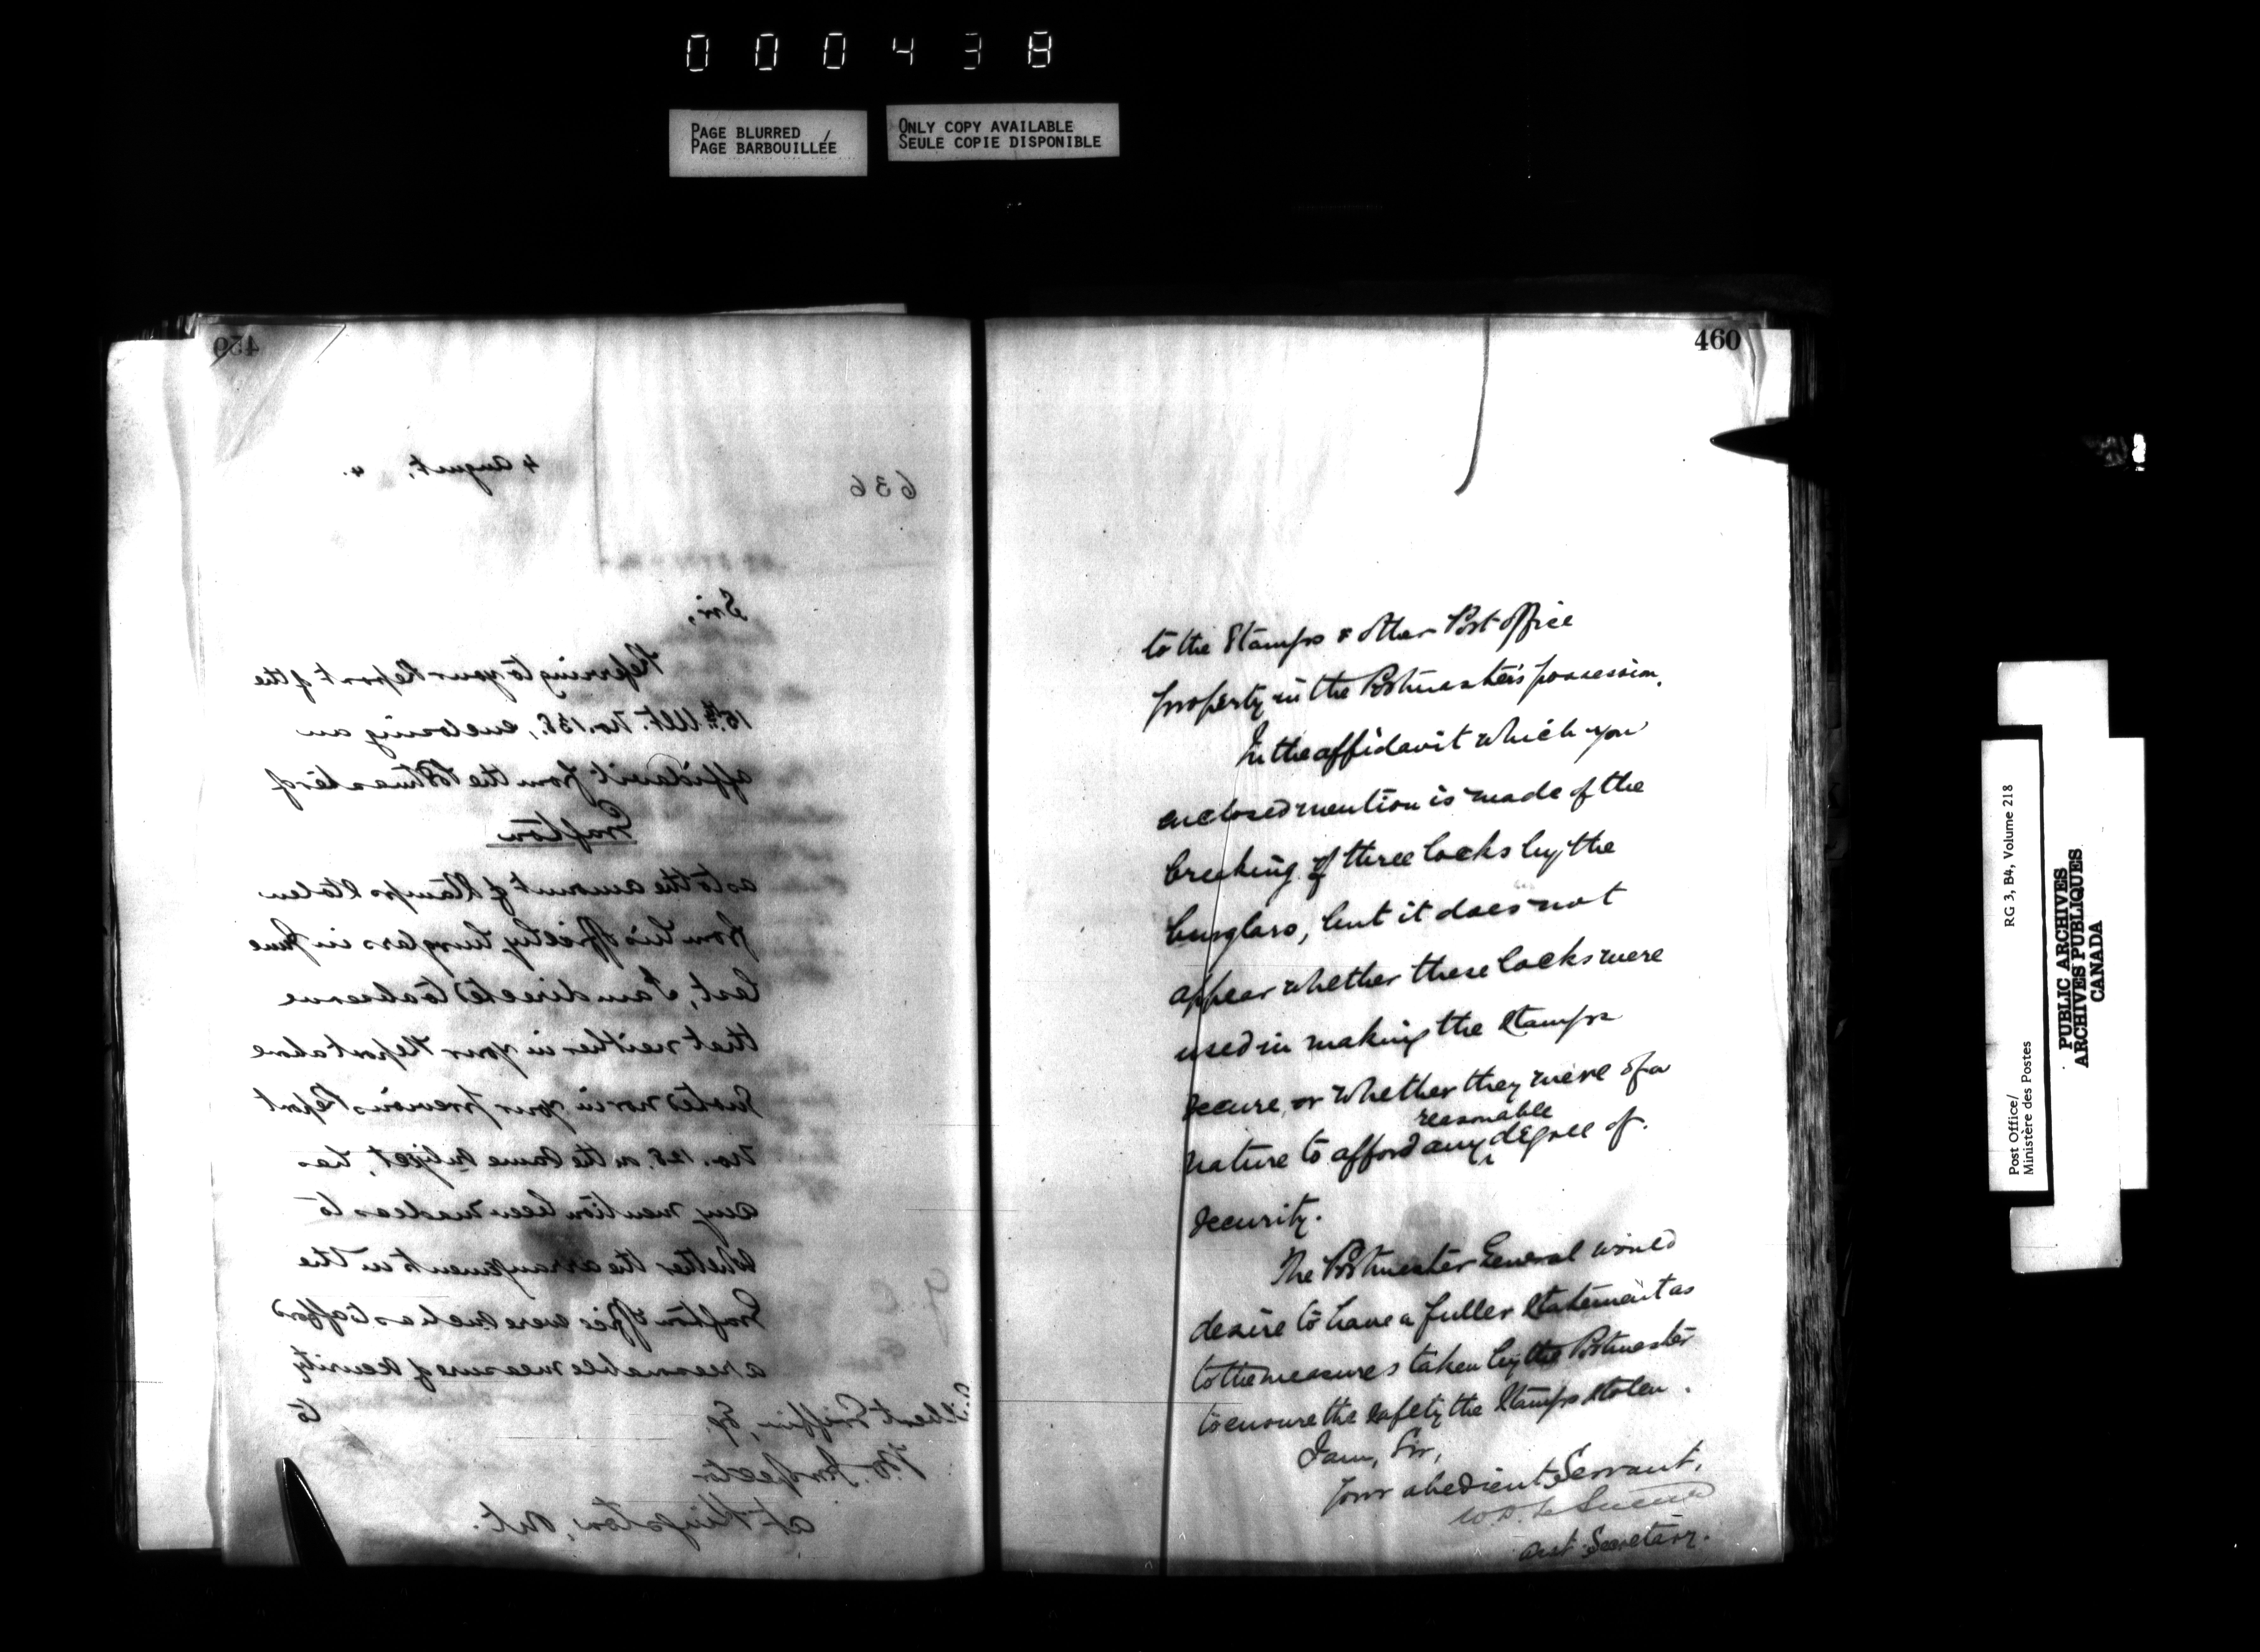 000438
PAGE BLURRED /
PAGE BARBOUILLÉE
ONLY COPY AVAILABLE
SEULE COPIE DISPONIBLE
459
4 August, 4.
636
Sir,
Referring to your Report of the
15th Ult. No. 138, enclosing an
affidavit from the Postmaster of
Grafton
as to the amount of Stamps stolen
from his Office by burglars in June
last, I am directed to observe
that neither in your Report above
quoted nor in your previous Report
No. 128, on the same subject, has
any mention been made as to
whether the arrangements in the
Grafton Office were such as to afford
a reasonable measure of security
to
Gilbert Griffin, Esq.
P.O. Inspector
at Kingston, Ont.
460
to the Stamps & other Post Office
property in the Postmaster's possession.
In the affidavit which you
enclosed mention is made of the
breaking of three locks by the
burglars, but it does not
appear whether these locks were
used in making the Stamps
secure, or whether they were of a
reasonable
nature to afford any degree of
security.
The Postmaster General would
desire to have a fuller statement as
to the measures taken by the Postmaster
to ensure the safety the Stamps stolen.
I am, Sir,
Your obedient Servant,
W.D. LeSueur
Asst Secretary.
Post Office/ RG 3, B4, Volume 218
Ministère des Postes
PUBLIC ARCHIVES
ARCHIVES PUBLIQUES
CANADA